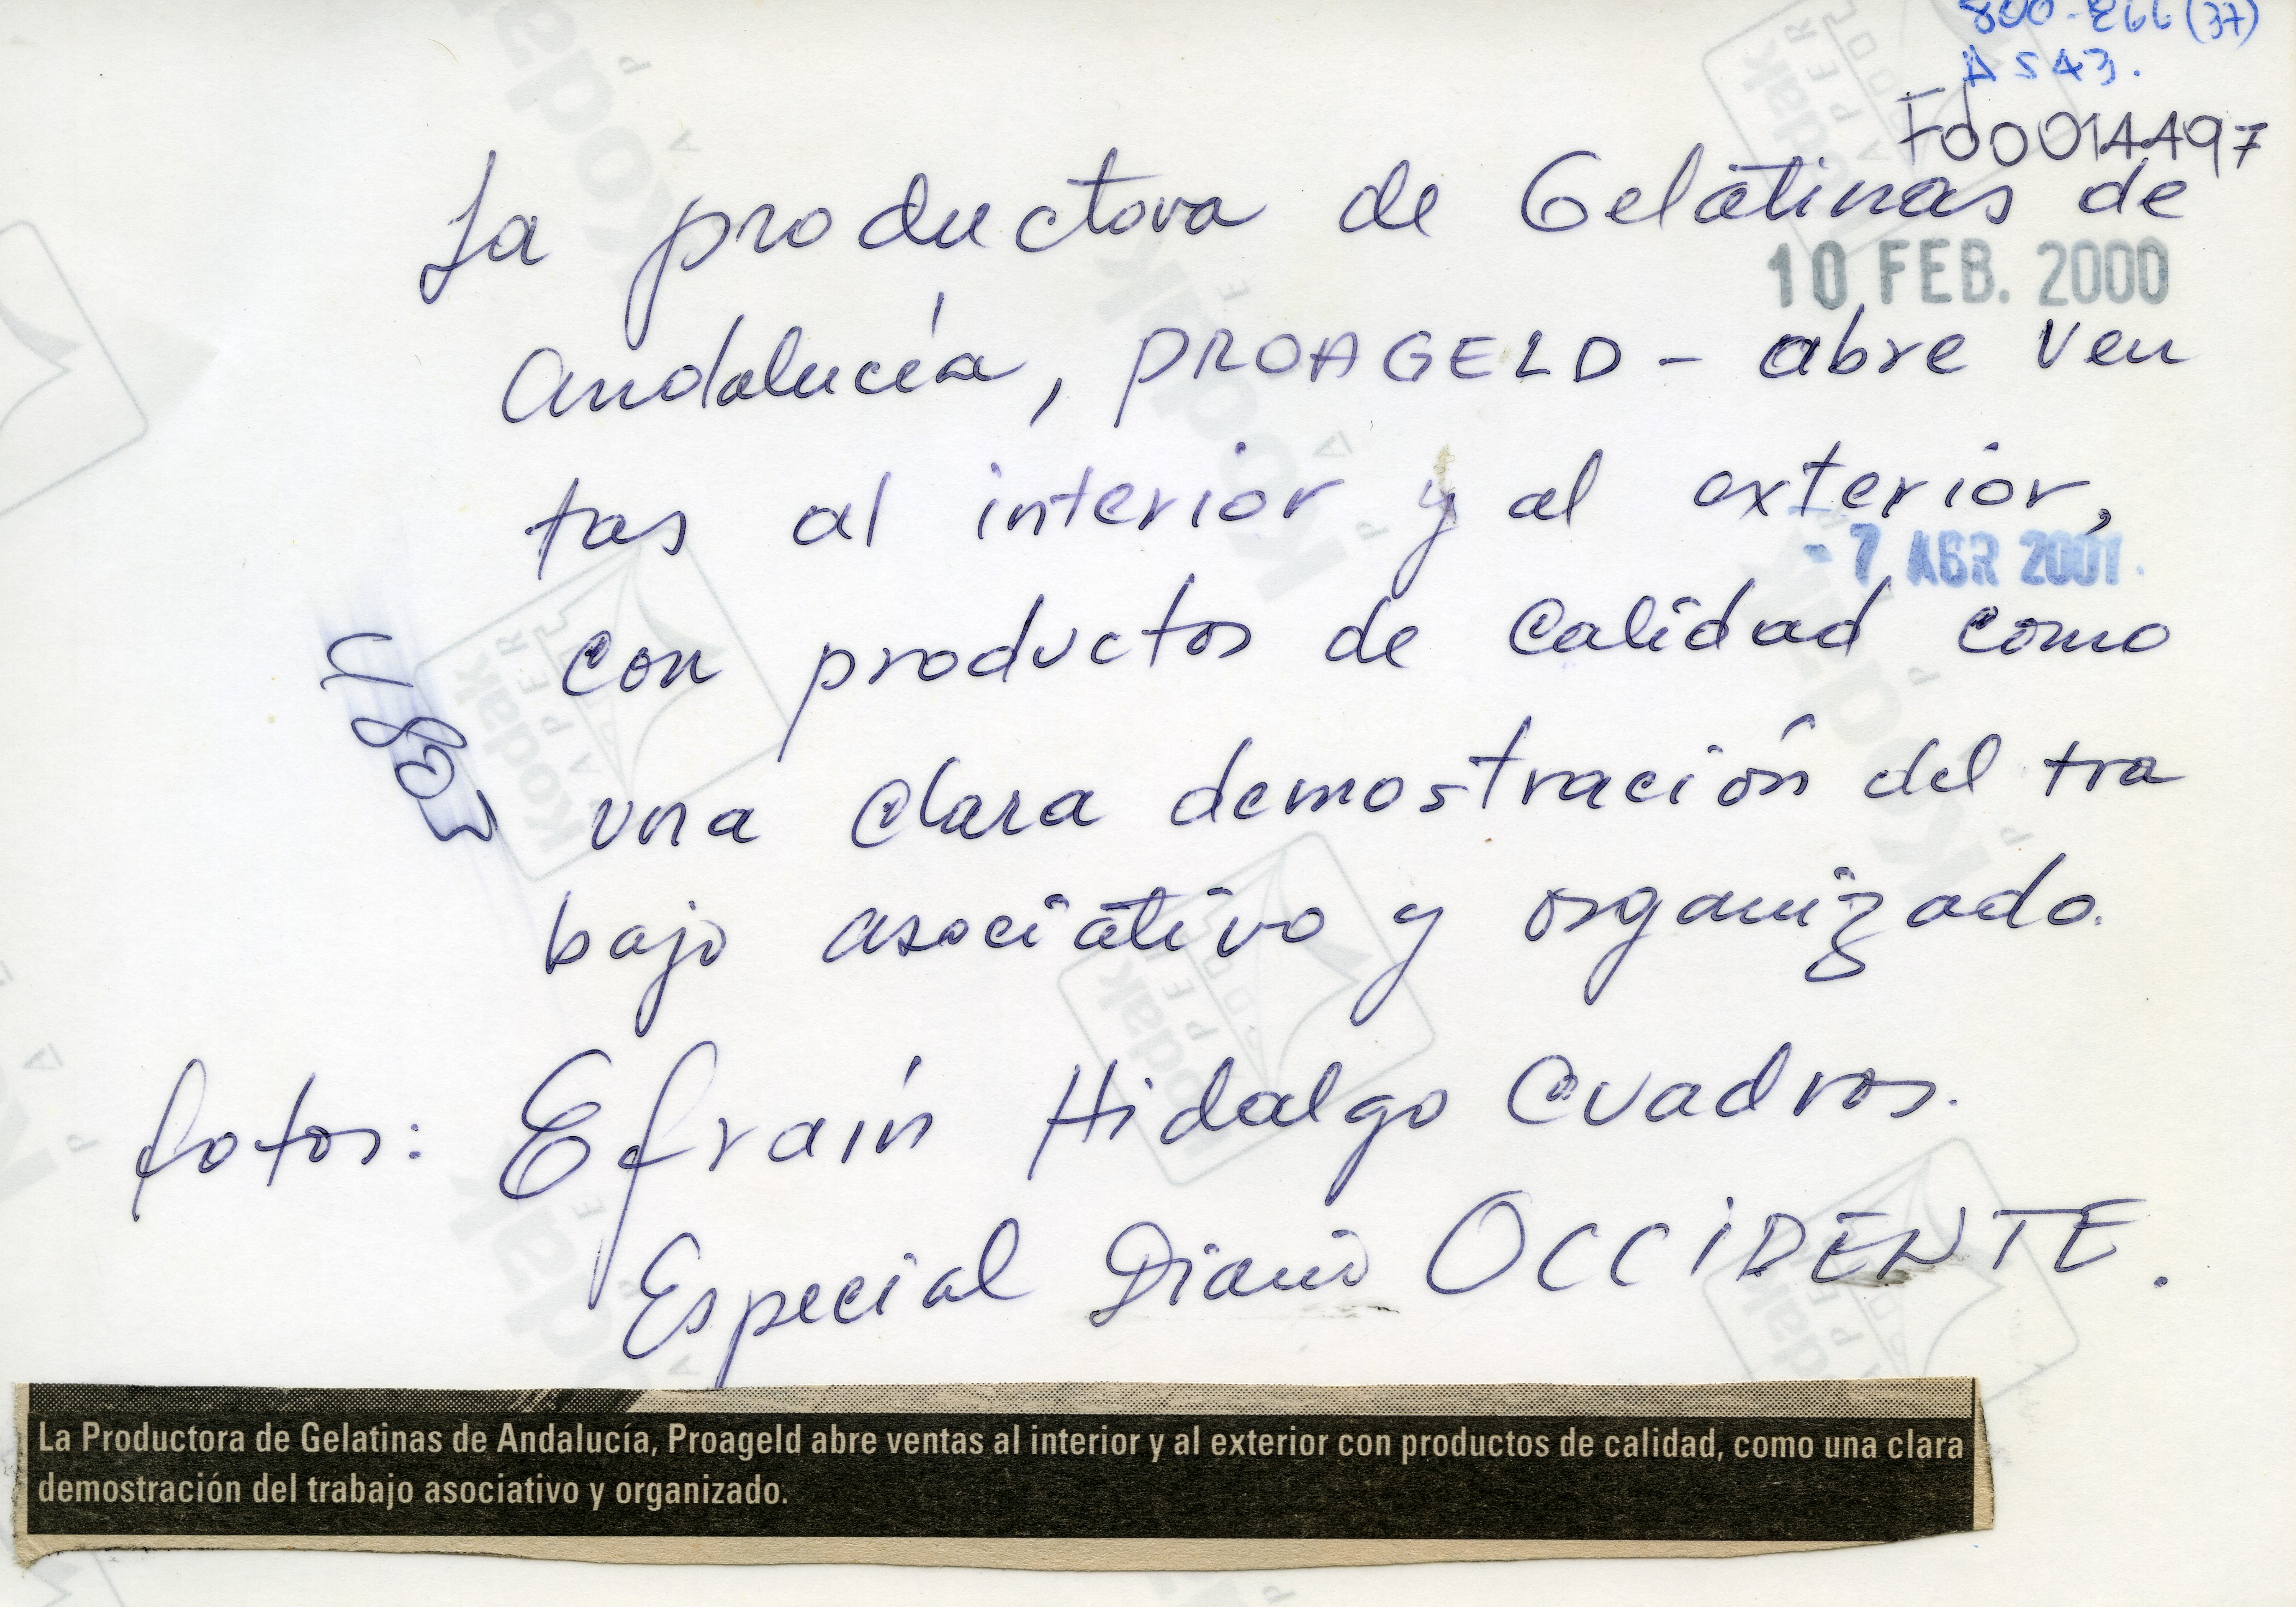 800-266(37)
A543.
Fd0014497
La productora de Gelatinas de
10 FEB. 2000
Andalucía, PROAGELD - abre ven
tas al interior y al exterior,
- 7 ABR 2001.
con productos de calidad como
una clara demostración del tra
bajo asociativo y organizado.
fotos: Efraín Hidalgo Cuadros.
Especial Diario OCCIDENTE.
La Productora de Gelatinas de Andalucía, Proageld abre ventas al interior y al exterior con productos de calidad, como una clara
demostración del trabajo asociativo y organizado.